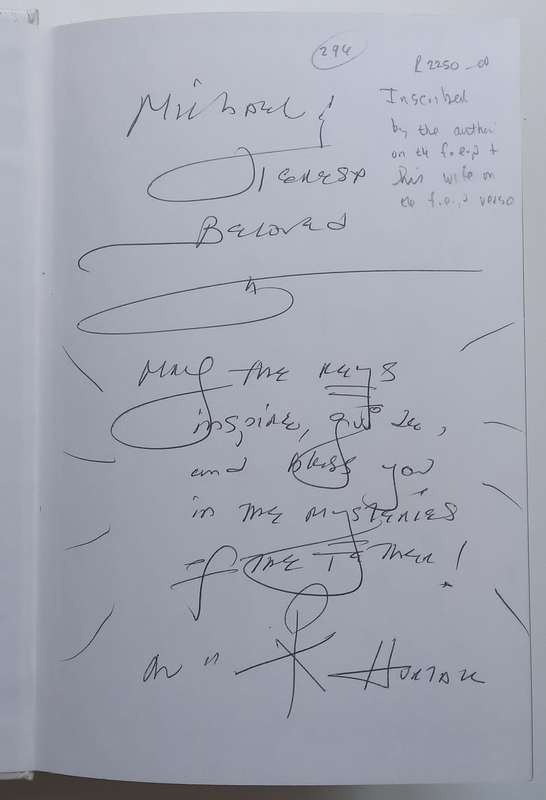 294
R2250_00
Inscribed
by the author
on the f.e.p &
his wife on
the f.e.p verso
Michael!
Beloved
May the keys
inspire, guide,
and bless you
in the mysteries
of the
Hurtak